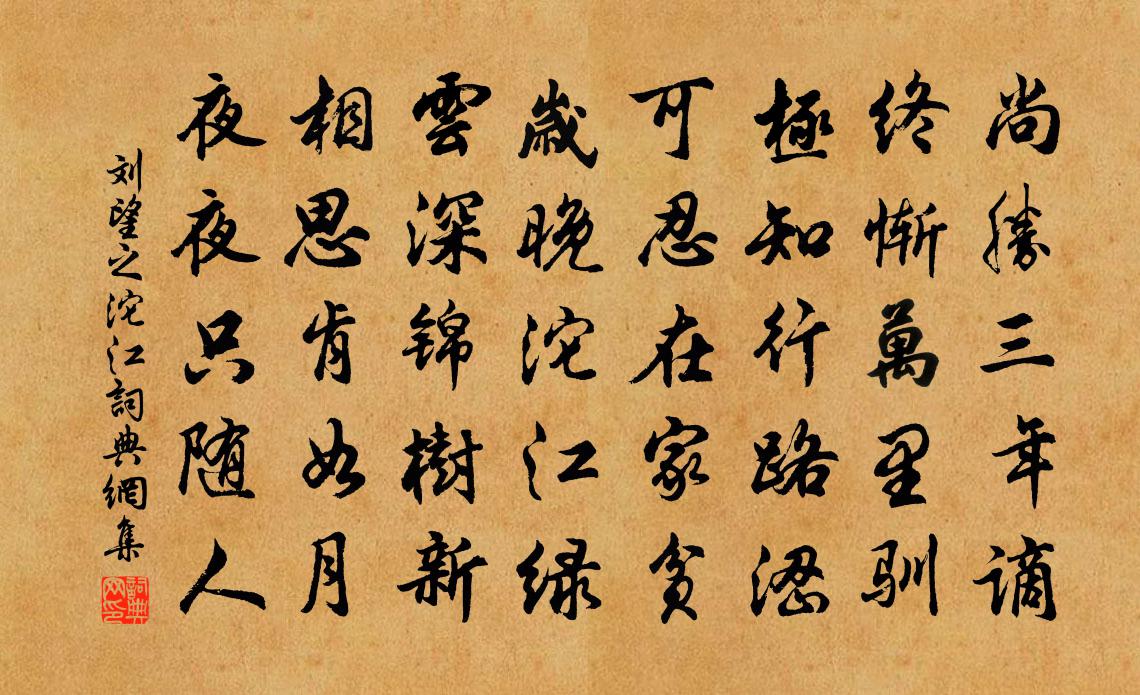 尚勝三年謫
終慚萬里馴
極知行路澀
可忍在家貧
歲晚沱江綠
雲深錦樹新
相思肯如月
夜夜只随人
刘望之沱江詞典網集
詞典网印